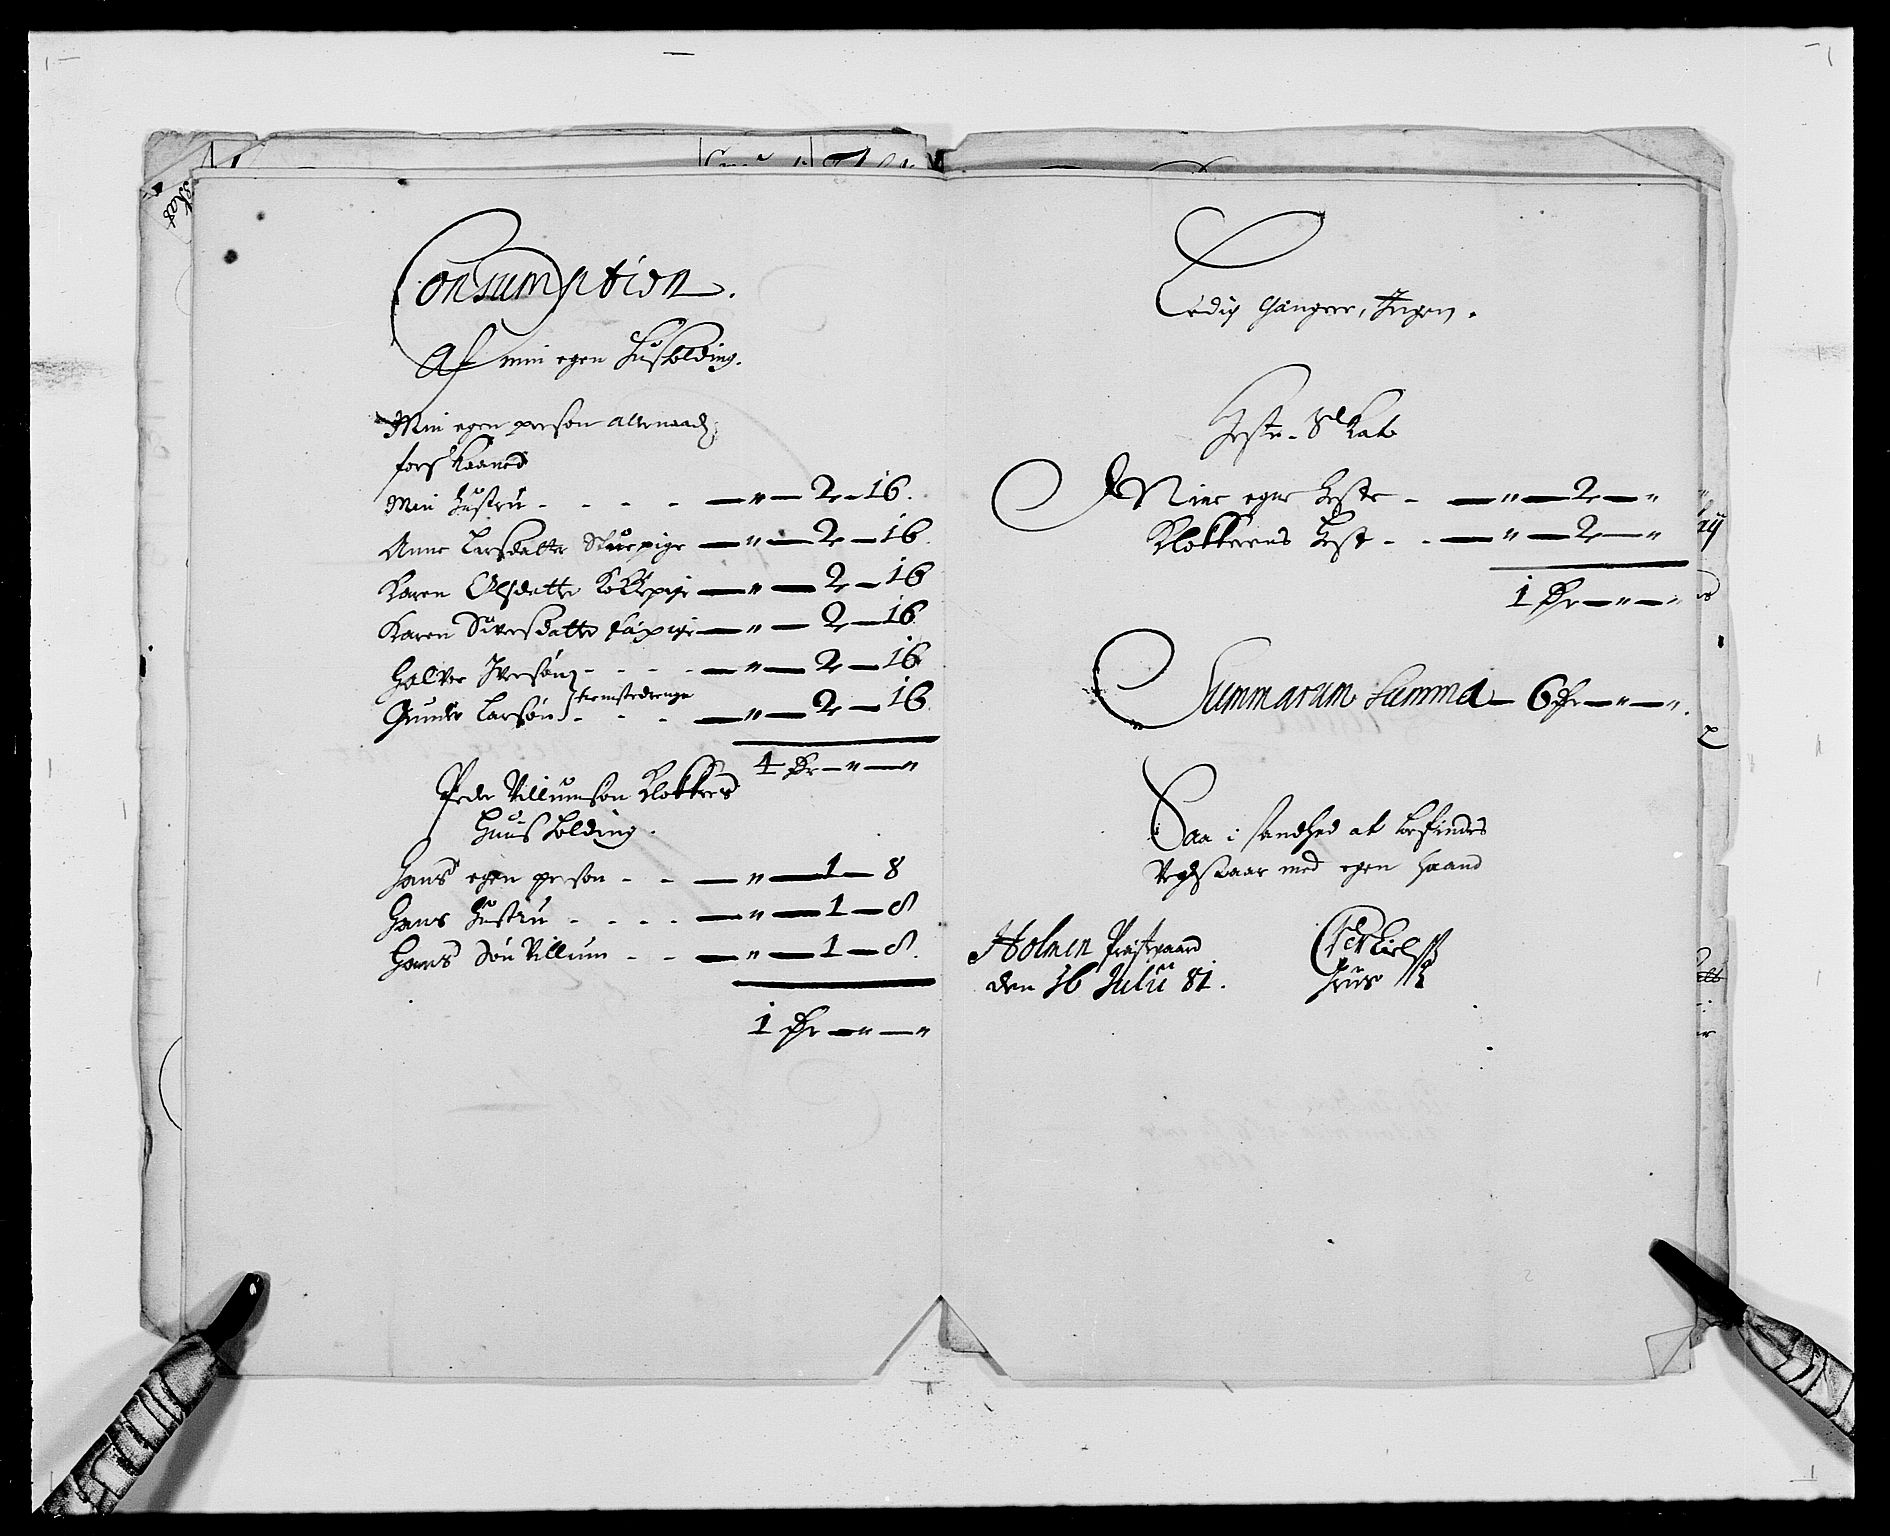 Consumption.
Af min egen Husholding.
Min egen person allernaad:
forskaaned
Min Hustru - - - - — " — 2 — 16.
Anne Larsdatter Stuepige — " — 2 — 16.
Karen Olsdatter Kokkepige — " — 2 — 16
Karen Siversdatter — " — 2 — 16
Halvor Iversøn - - - - — " — 2 — 16
Gunder Larsøn - - - — " — 2 — 16.
4 Dr — " — "
Peder Villumsøn Klokkers
Huusholding.
Hans egen person - - — " — 1 — 8
Hans Hustru - - - - — " — 1 — 8
Hans Søn Villum - - — " — 1 — 8.
1 Dr — " — "
Ledig Gangere, Ingen.
Heste-Skat
Mine egne Heste - — " — 2 — "
Klokkerens Hest - - — " — 2 — "
1 Dr — " — "
Summarum Summa — 6 Dr — " — ".
Saa i sandhed at befindes
Vedstaar med egen Haand
Holmen Præstgaard
den 16 Julii 81.